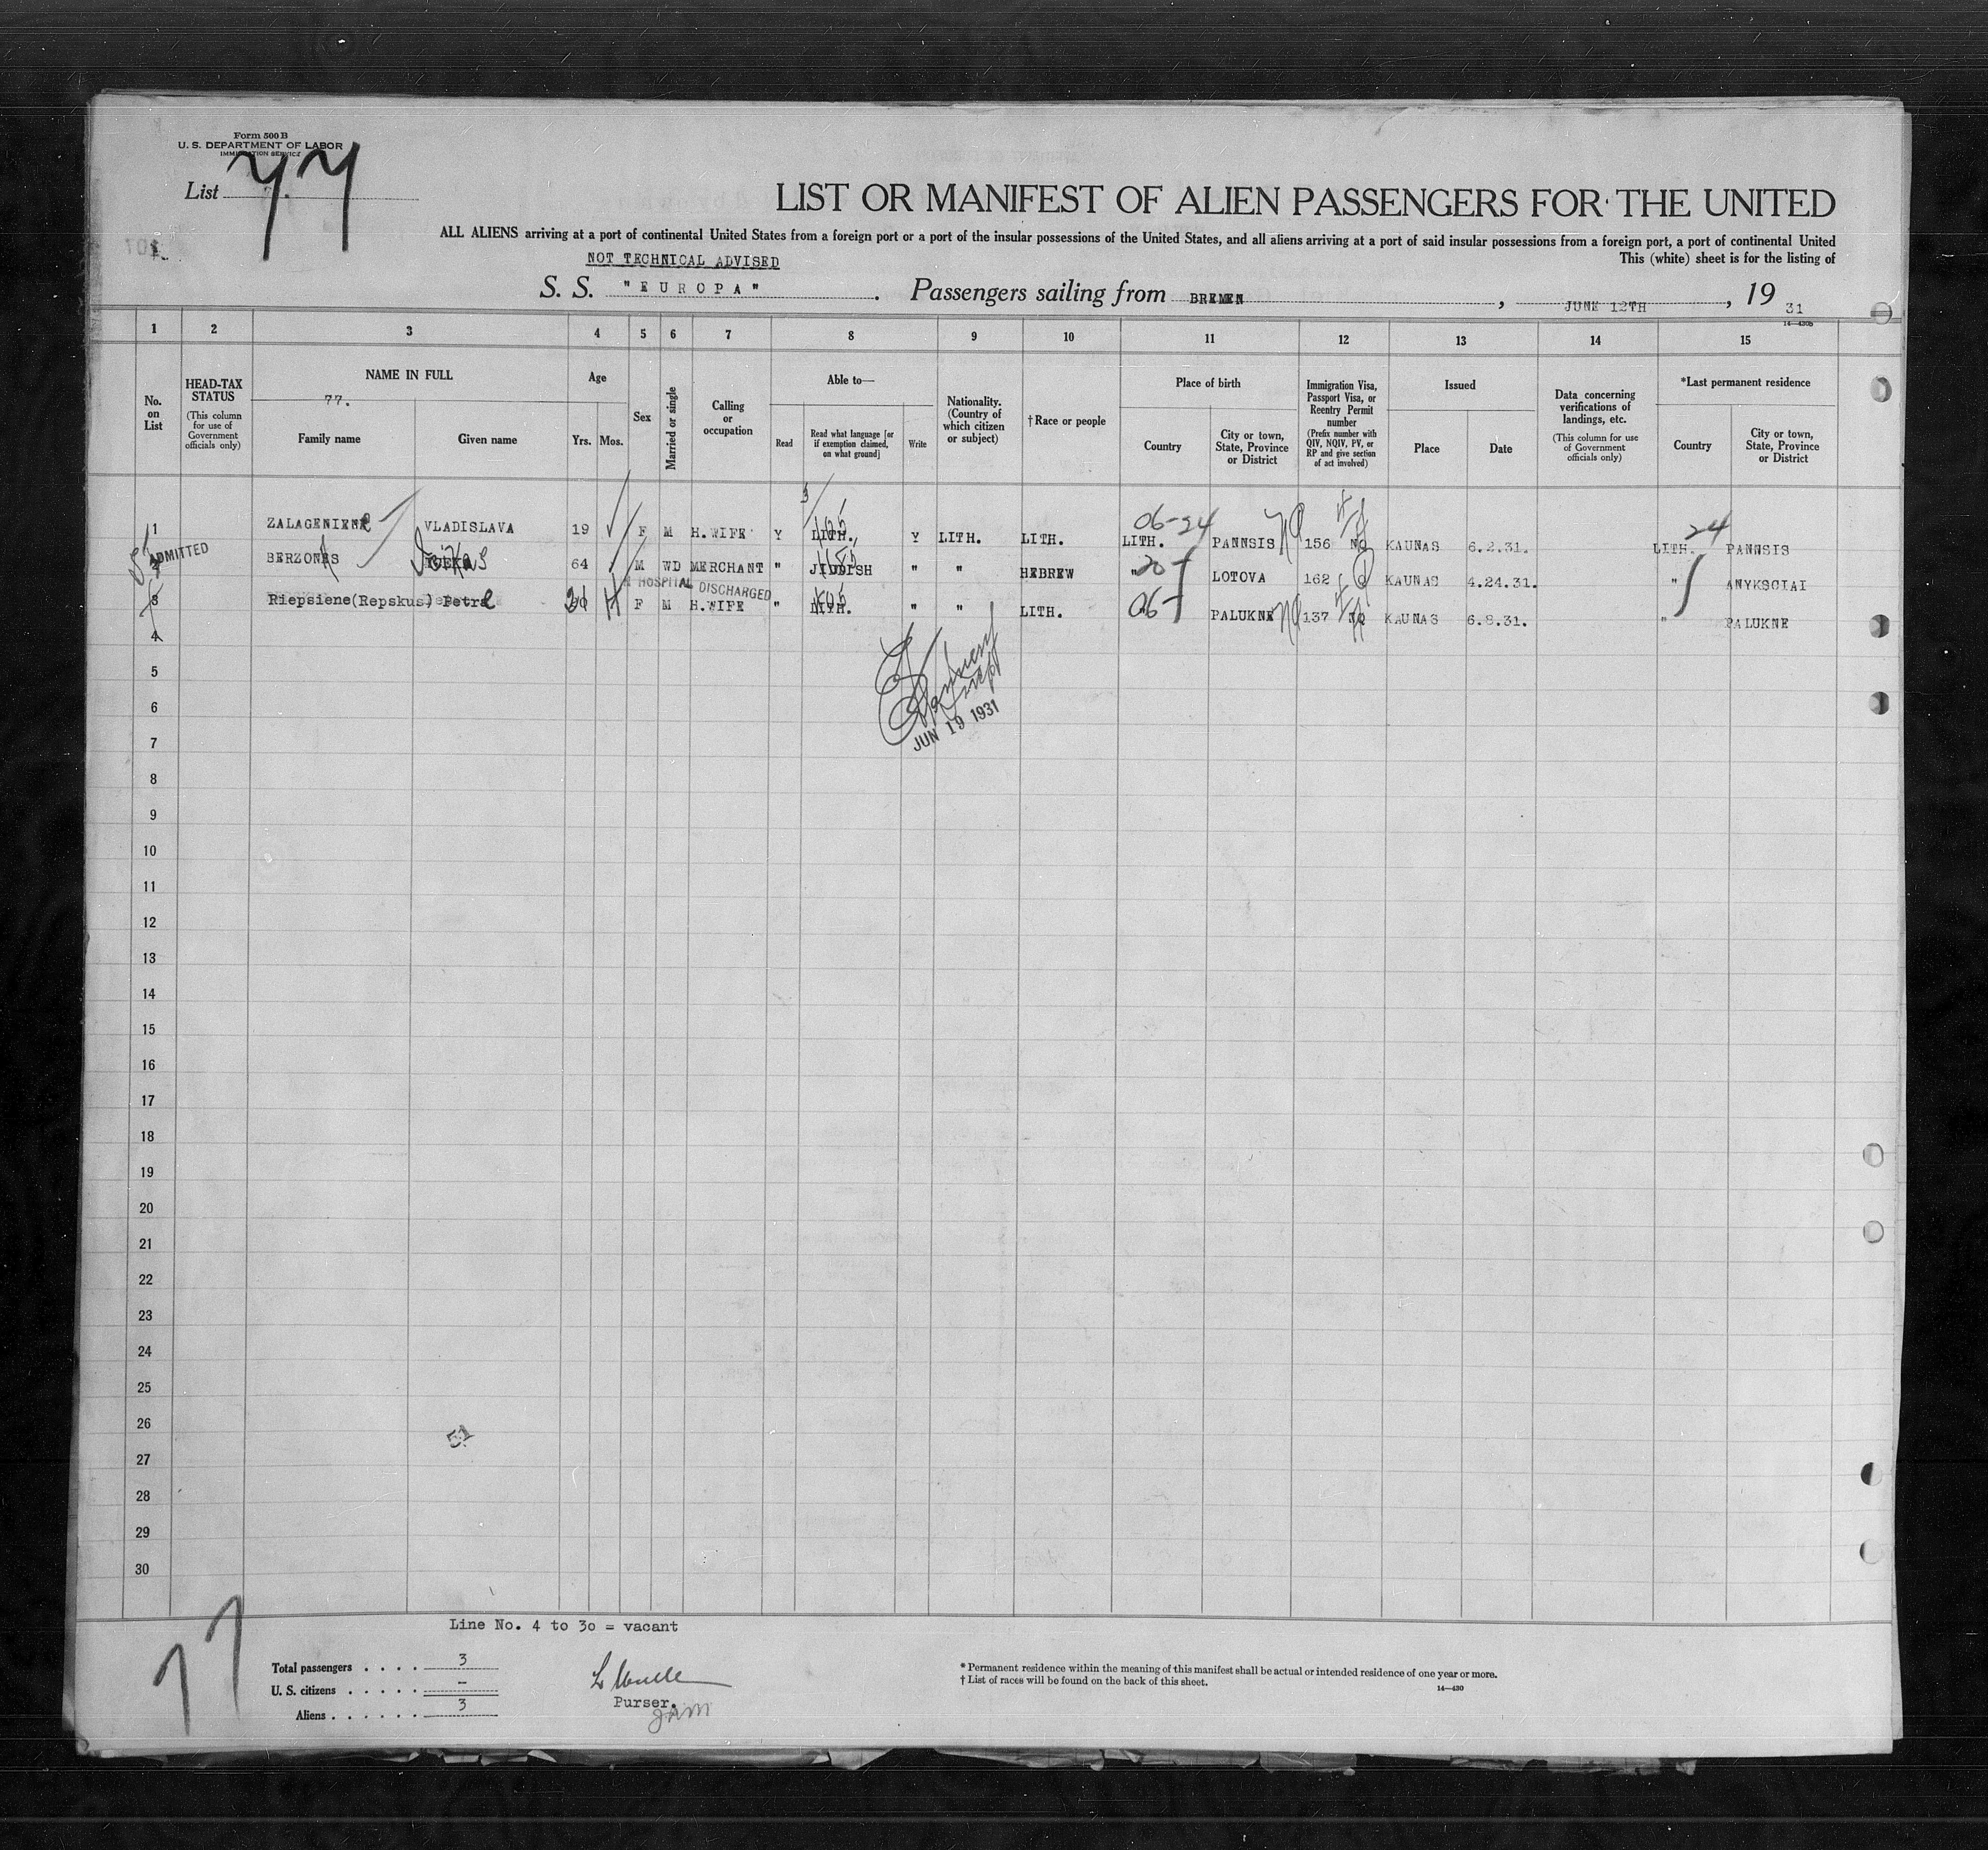 Form 500 B
U. S. DEPARTMENT OF LABOR
IMMIGRATION SERVICE
List 77
LIST OR MANIFEST OF ALIEN PASSENGERS FOR THE UNITED
ALL ALIENS arriving at a port of continental United States from a foreign port or a port of the insular possessions of the United States, and all aliens arriving at a port of said insular possessions from a foreign port, a port of continental United
NOT TECHNICAL ADVISED
This (white) sheet is for the listing of
S. S. "EUROPA". Passengers sailing from BREMEN, JUNE 12TH, 19 31
14—430B
1 2 3 4 5 6 7 8 9 10 11 12 13 14 15
No. on List
HEAD-TAX STATUS
(This column for use of Government officials only)
NAME IN FULL
77.
Family name Given name
Age
Yrs. Mos.
Sex
Married or single
Calling or occupation
Able to—
Read
Read what language [or if exemption claimed, on what ground]
Write
Nationality. (Country of which citizen or subject)
†Race or people
Place of birth
Country
City or town, State, Province or District
Immigration Visa, Passport Visa, or Reentry Permit number
(Prefix number with QIV, NQIV, PV, or RP and give section of act involved)
Issued
Place Date
Data concerning verifications of landings, etc.
(This column for use of Government officials only)
*Last permanent residence
Country
City or town, State, Province or District
06-24 24
1 ZALAGENIENE VLADISLAVA 19 F M H.WIFE Y LITH. Y LITH. LITH. LITH. PANNSIS 156 NQ KAUNAS 6.2.31. LITH. PANNSIS
ADMITTED
2 BERZONAS 64 M WD MERCHANT " JIDDISH " " HEBREW " LOTOVA 162 Q KAUNAS 4.24.31. " ANYKSCIAI
IN HOSPITAL DISCHARGED
3 Riepsiene(Repskus) Petre F M H.WIFE " LITH. " " LITH. 06 PALUKNE 137 NQ KAUNAS 6.8.31. " PALUKNE
4
5
6
JUN 19 1931
7
8
9
10
11
12
13
14
15
16
17
18
19
20
21
22
23
24
25
26
27
28
29
30
Line No. 4 to 30 = vacant
77
Total passengers . . . . 3
U. S. citizens . . . . . –
Aliens . . . . . . 3
Purser.
*Permanent residence within the meaning of this manifest shall be actual or intended residence of one year or more.
†List of races will be found on the back of this sheet.
14—430